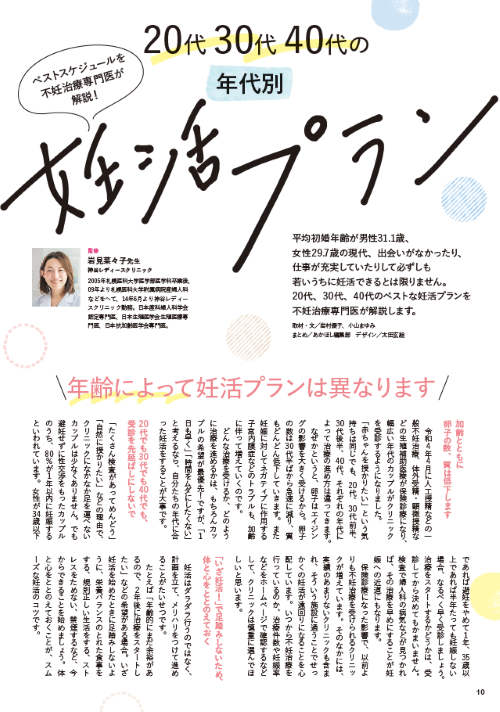 ベストスケジュールを
不妊治療専門医が
解説！
20代 30代 40代の
年代別
妊活プラン
平均初婚年齢が男性31.1歳、
女性29.7歳の現代、出会いがなかったり、
仕事が充実していたりして必ずしも
若いうちに妊活できるとは限りません。
20代、30代、40代のベストな妊活プランを
不妊治療専門医が解説します。
監修
岩見菜々子先生
神谷レディースクリニック
2005年札幌医科大学医学部医学科卒業後、
09年より札幌医科大学附属病院産婦人科
などをへて、14年6月より神谷レディー
スクリニック勤務。日本産科婦人科学会
認定専門医、日本生殖医学会生殖医療専
門医、日本抗加齢医学会専門医。
年齢によって妊活プランは異なります
加齢とともに
卵子の数、質は低下します
令和4年4月に人工授精などの一
般不妊治療、体外受精・顕微授精な
どの生殖補助医療が保険診療になり、
幅広い年代のカップルがクリニック
を受診するようになりました。
「赤ちゃんを授かりたい」という気
持ちは同じでも、20代、30代前半、
30代後半、40代、それぞれの年代に
よって治療の進め方は違ってきます。
なぜかというと、卵子はエイジン
グの影響を大きく受けるから。卵子
の数は30代半ばから急速に減り、質
もどんどん低下していきます。また
妊娠に対してネガティブに作用する
子宮内膜症などのトラブルも、加齢
に伴って増えていくのです。
どんな治療を受けるか、どのよう
に治療を進めるかは、もちろんカッ
プルの希望が最優先ですが、「1
日も早く」「時間をムダにしたくない」
と考えるなら、自分たちの年代に合
った妊活をすることが大事です。
20代でも30代でも40代でも、
受診を先延ばしにしないで
「たくさん検査があってめんどう」
「自然に授かりたい」などの理由で、
クリニックになかなか足を運べない
カップルは少なくありません。でも
避妊せずに性交渉をもったカップル
のうち、80%が1年以内に妊娠する
といわれています。女性が34歳以下
であれば避妊をやめて1年、35歳以
上であれば半年たっても妊娠しない
場合、なるべく早く受診しましょう。
治療をスタートするかどうかは、受
診してから決めてもかまいません。
検査で婦人科の病気などが見つかれ
ば、その治療を早めにすることが妊
娠への近道にもなります。
保険診療になった影響で、以前よ
りも不妊治療を受けられるクリニッ
クが増えています。そのなかには、
実績のあまりないクリニックも含ま
れ、そういう施設に通うことでせっ
かくの妊活が遠回りになることを心
配しています。いつから不妊治療を
行っているのか、治療件数や妊娠率
などをホームページで確認するなど
して、クリニックは慎重に選んでほ
しいと思います。
「いざ妊活！」で足踏みしないため、
体と心をととのえておく
妊活はダラダラ行うのではなく、
計画を立て、メリハリをつけて進め
ることがたいせつです。
たとえば「年齢的にまだ余裕があ
るので、2年後に治療をスタートし
たい」などの希望がある場合、いざ
妊活を始めたときに足踏みしないよ
うに、栄養バランスのとれた食事を
する、規則正しい生活をする、スト
レスをためない、禁煙するなど、今
からできることを始めましょう。体
と心をととのえておくことが、スム
ーズな妊活のコツです。
10